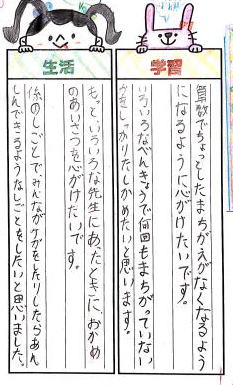 学習
算数でちょっとしたまちがえがなくなるよう
になるように心がけたいです。
いろいろなべんきょうで何回もまちがっていない
かをしっかりたしかめたいと思います。
生活
もっといろいろな先生にあったときに、おかめ
のあいさつを心がけたいです。
係のしごとでみんながケガをしたりしたらあん
しんできるようなしごとをしたいと思いました。